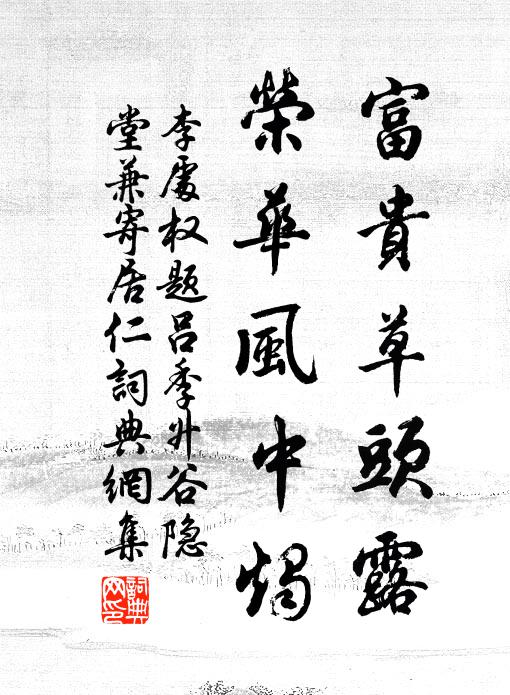 富貴草頭露
榮華風中燭
李處权题吕季升谷隐
堂兼寄居仁詞典網集